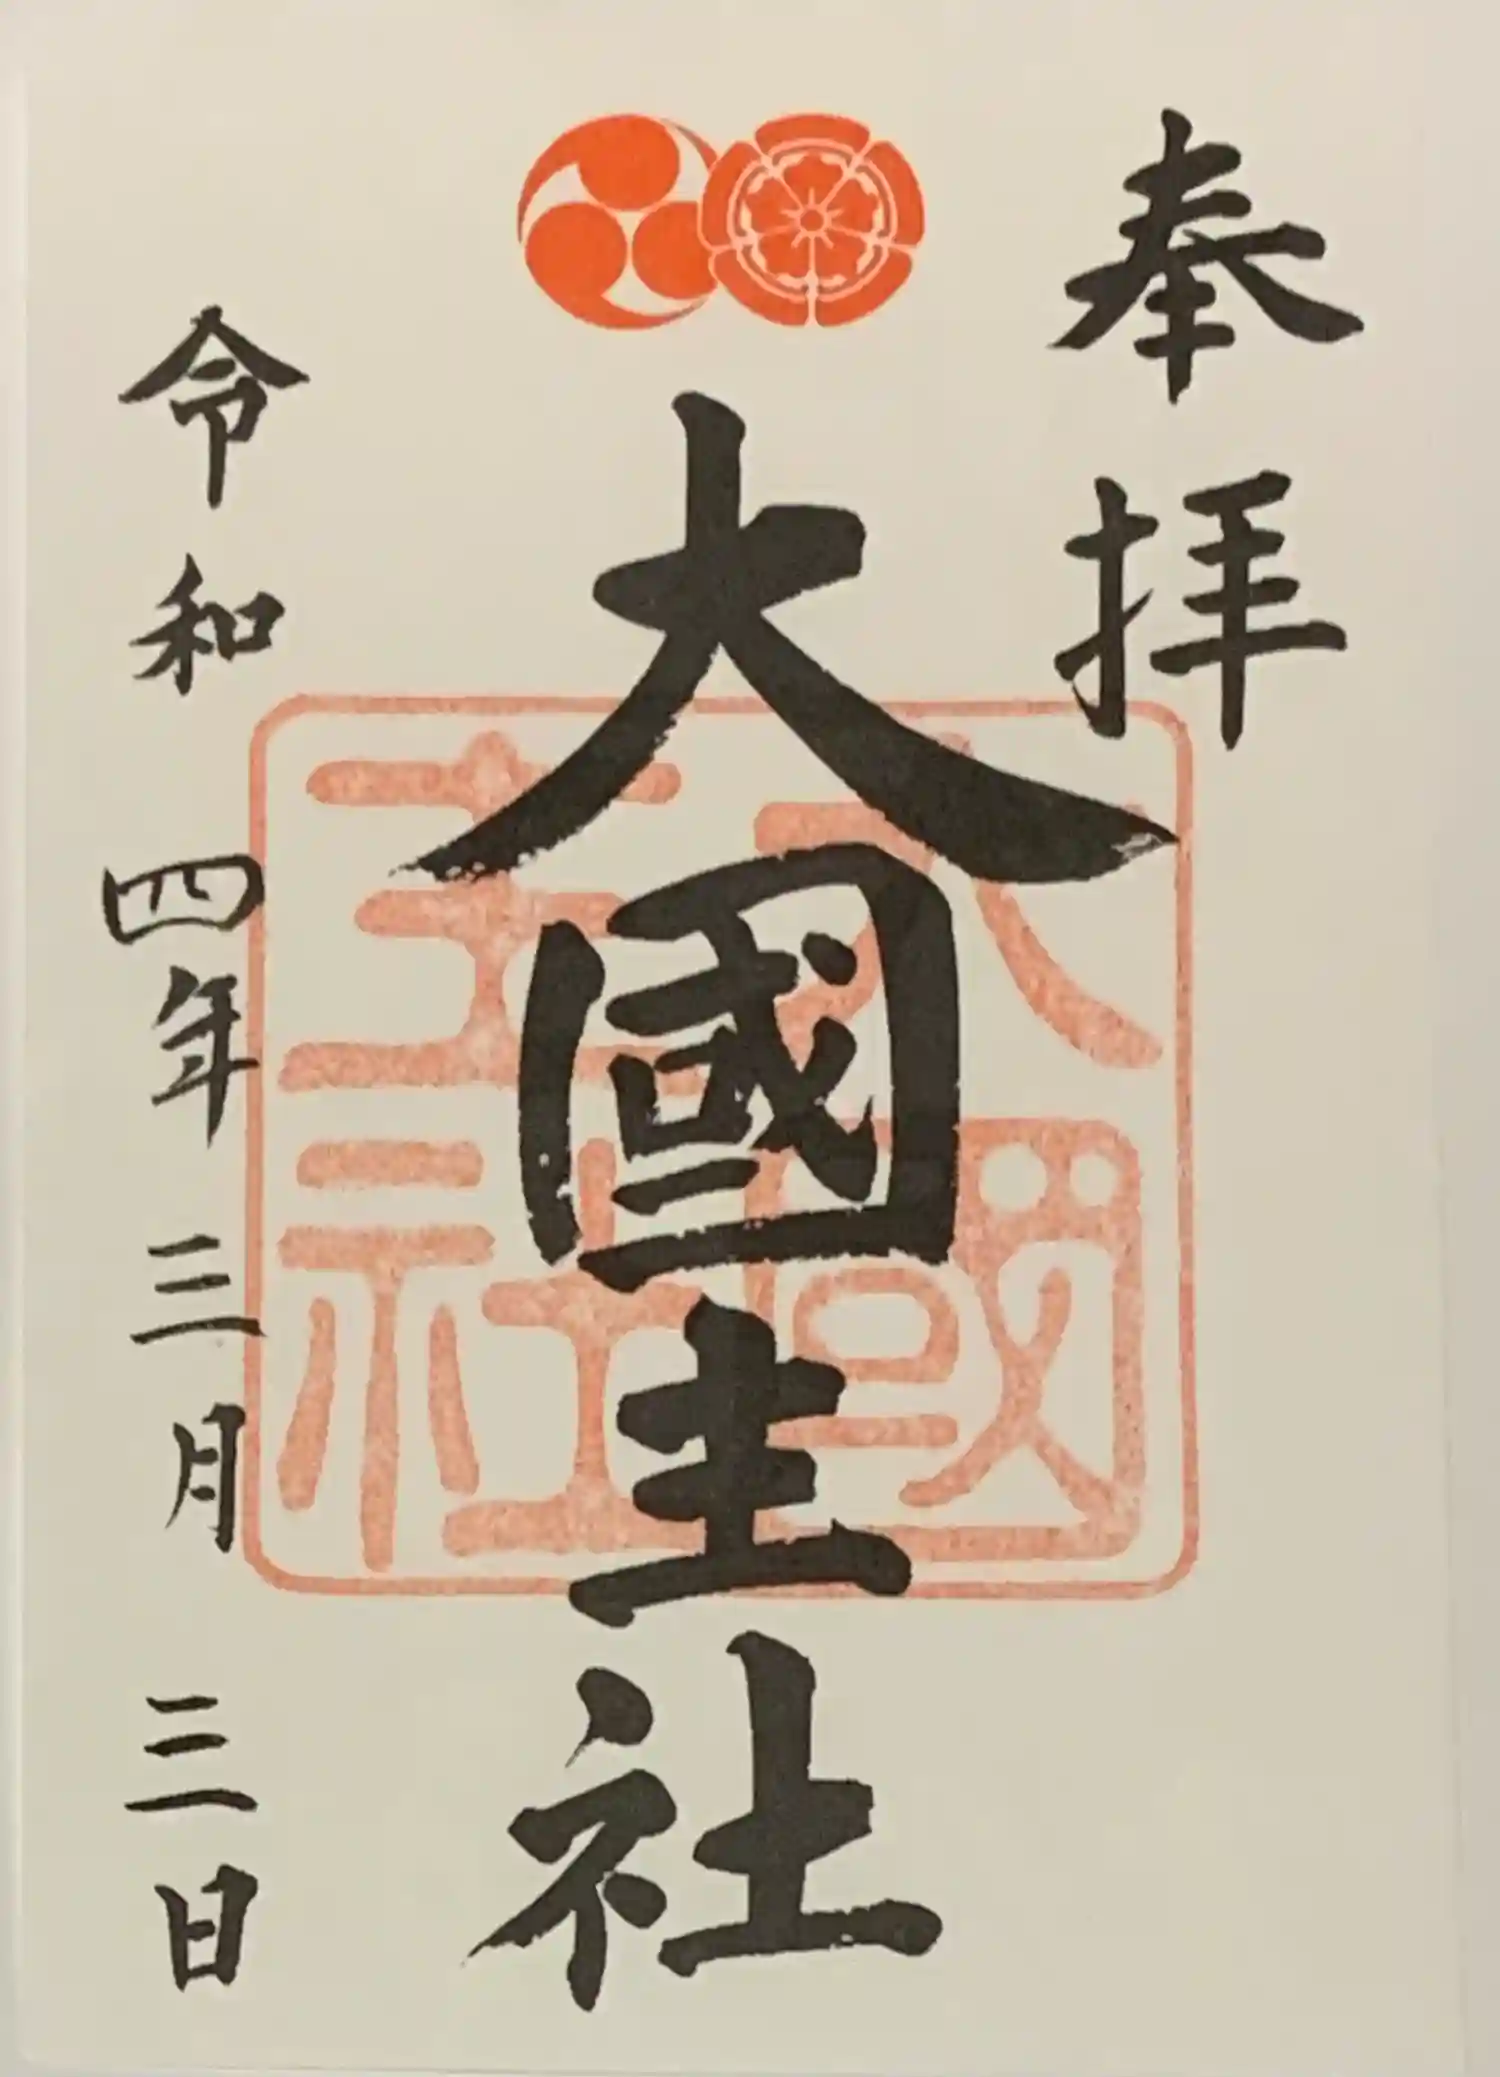 奉拝
大國主社
大國
主社
令和四年三月三日